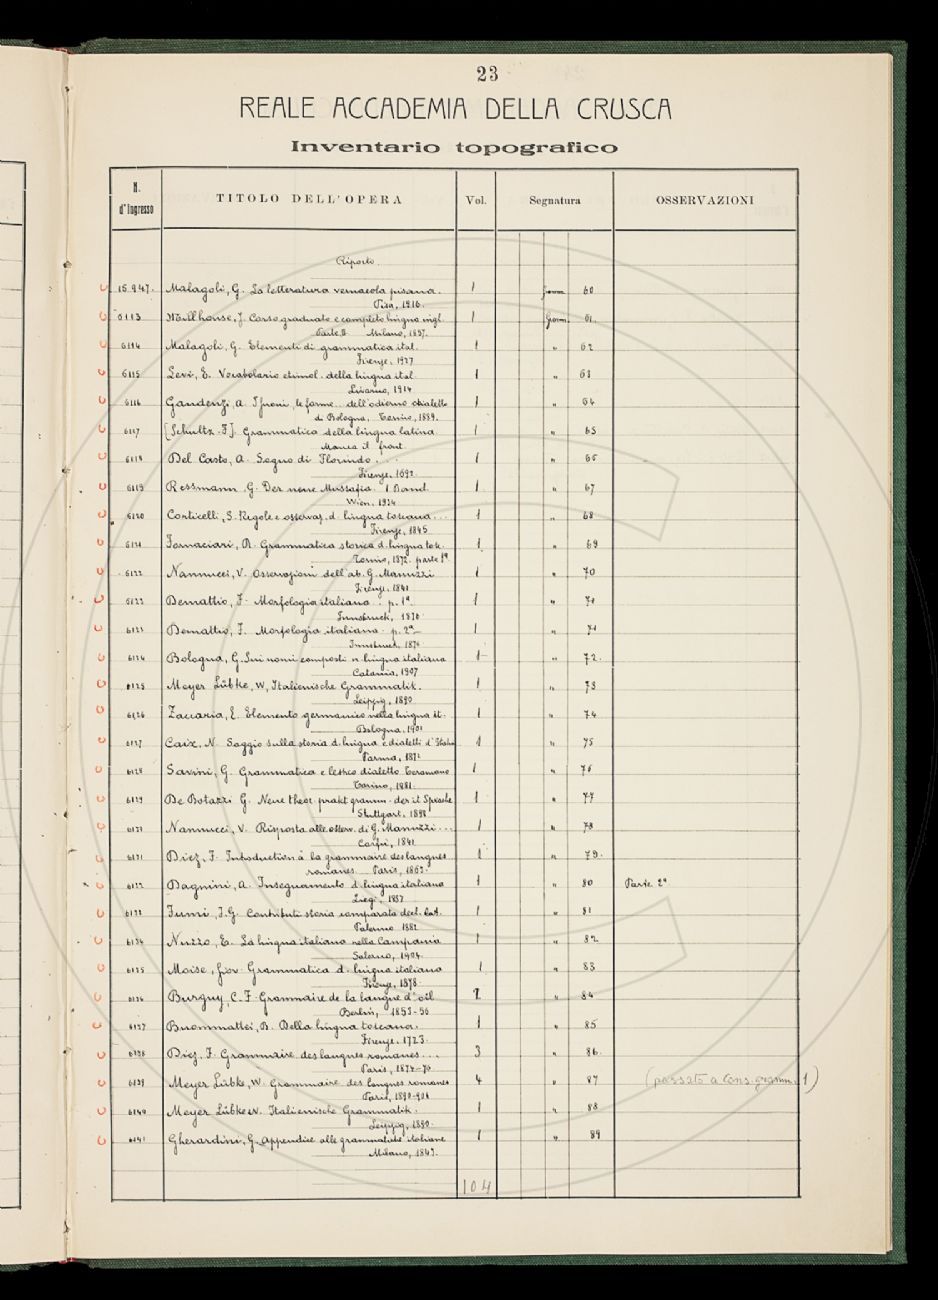 23
REALE ACCADEMIA DELLA CRUSCA
Inventario topografico
N. d'Ingresso TITOLO DELL'OPERA Vol. Segnatura OSSERVAZIONI
Riporto.
15.947. Malagoli, G. La letteratura vernacola pisana. 1 Gramm. 60
Pisa, 1916.
6113 Millhouse, J. Corso graduato e completo lingua ingl. 1 Gramm. 61.
Parte II Milano, 1897.
6114 Malagoli, G. Elementi di grammatica ital. 1 " 62
Firenze, 1927
6115 Levi, E. Vocabolario etimol. della lingua ital. 1 " 63
Livorno, 1914
6116 Gaudenzi, A. I suoni, le forme... dell'odierno dialetto 1 " 64
di Bologna. Torino, 1889.
6117 [Schultz F]. Grammatica della lingua latina. 1 " 65
Manca il front.
6118 Del Casto, A. Sogno di Florindo... 1 " 66
Firenze, 1692.
6119 Rossmann, G. Der neue Mussafia. 1 Band. 1 " 67
Wien, 1924
6120 Corticelli, S. Regole e osservaz. d. lingua toscana... 1 " 68
Firenze, 1845
6121 Fornaciari, R. Grammatica storica d. lingua tosc. 1 " 69
Torino, 1872. parte 1ª
6122 Nannucci, V. Osservazioni dell'ab. G. Manuzzi 1 " 70
Firenze, 1841
6123 Demattio, F. Morfologia italiana. p. 1ª 1 " 71
Innsbruck, 1876
6123 Demattio, F. Morfologia italiana. p. 2ª 1 " 71
Innsbruck, 1876
6124 Bologna, G. Sui nomi composti n. lingua italiana 1 " 72.
Catania, 1907
6125 Meyer Lübke, W, Italienische Grammatik. 1 " 73
Leipzig, 1890
6126 Zaccaria, E. Elemento germanico nella lingua it. 1 " 74
Bologna, 1901
6127 Caix, N. Saggio sulla storia d. lingua e dialetti d'Italia 1 " 75
Parma, 1872
6128 Savini, G. Grammatica e lessico dialetto Teramano 1 " 76
Torino, 1881.
6129 De Botazzi G. Neue theor. prakt gramm. der it Sprache 1 " 77
Stuttgart, 1898
Nannucci, V. Risposta alle osserv. di G. Manuzzi... 1 " 78
Corfù, 1841
6131 Diez, F. Introduction à la grammaire des langues 1 " 79.
romanes Paris, 1863.
Bagnini, A. Insegnamento d. lingua italiana 1 " 80 Parte 2ª
Fumi, F.G. Contributi storia comparata decl. lat. 1 " 81
Palermo 1882
6134 Nuzzo, E. La lingua italiana nella Campania 1 " 82
Salerno, 1904.
6135 Moise, Giov. Grammatica d. lingua italiana 1 " 83
Firenze, 1878
6136 Burguy, C.F. Grammaire de la langue d'oïl 2 " 84
Berlin, 1853-56
6137 Buommattei, B. Della lingua toscana. 1 " 85
Firenze, 1723.
6138 Diez, F. Grammaire des langues romanes... 3 " 86.
Paris, 1874-76
6139 Meyer Lübke, W. Grammaire des langues romanes 4 " 87 (passato a Cons. gramm. 1)
Paris, 1890-906
6140 Meyer Lübke W. Italienische Grammatik. 1 " 88
Leipzig, 1890.
6141 Gherardini, G. Appendice alle grammatiche italiane 1 " 89
Milano, 1847.
104